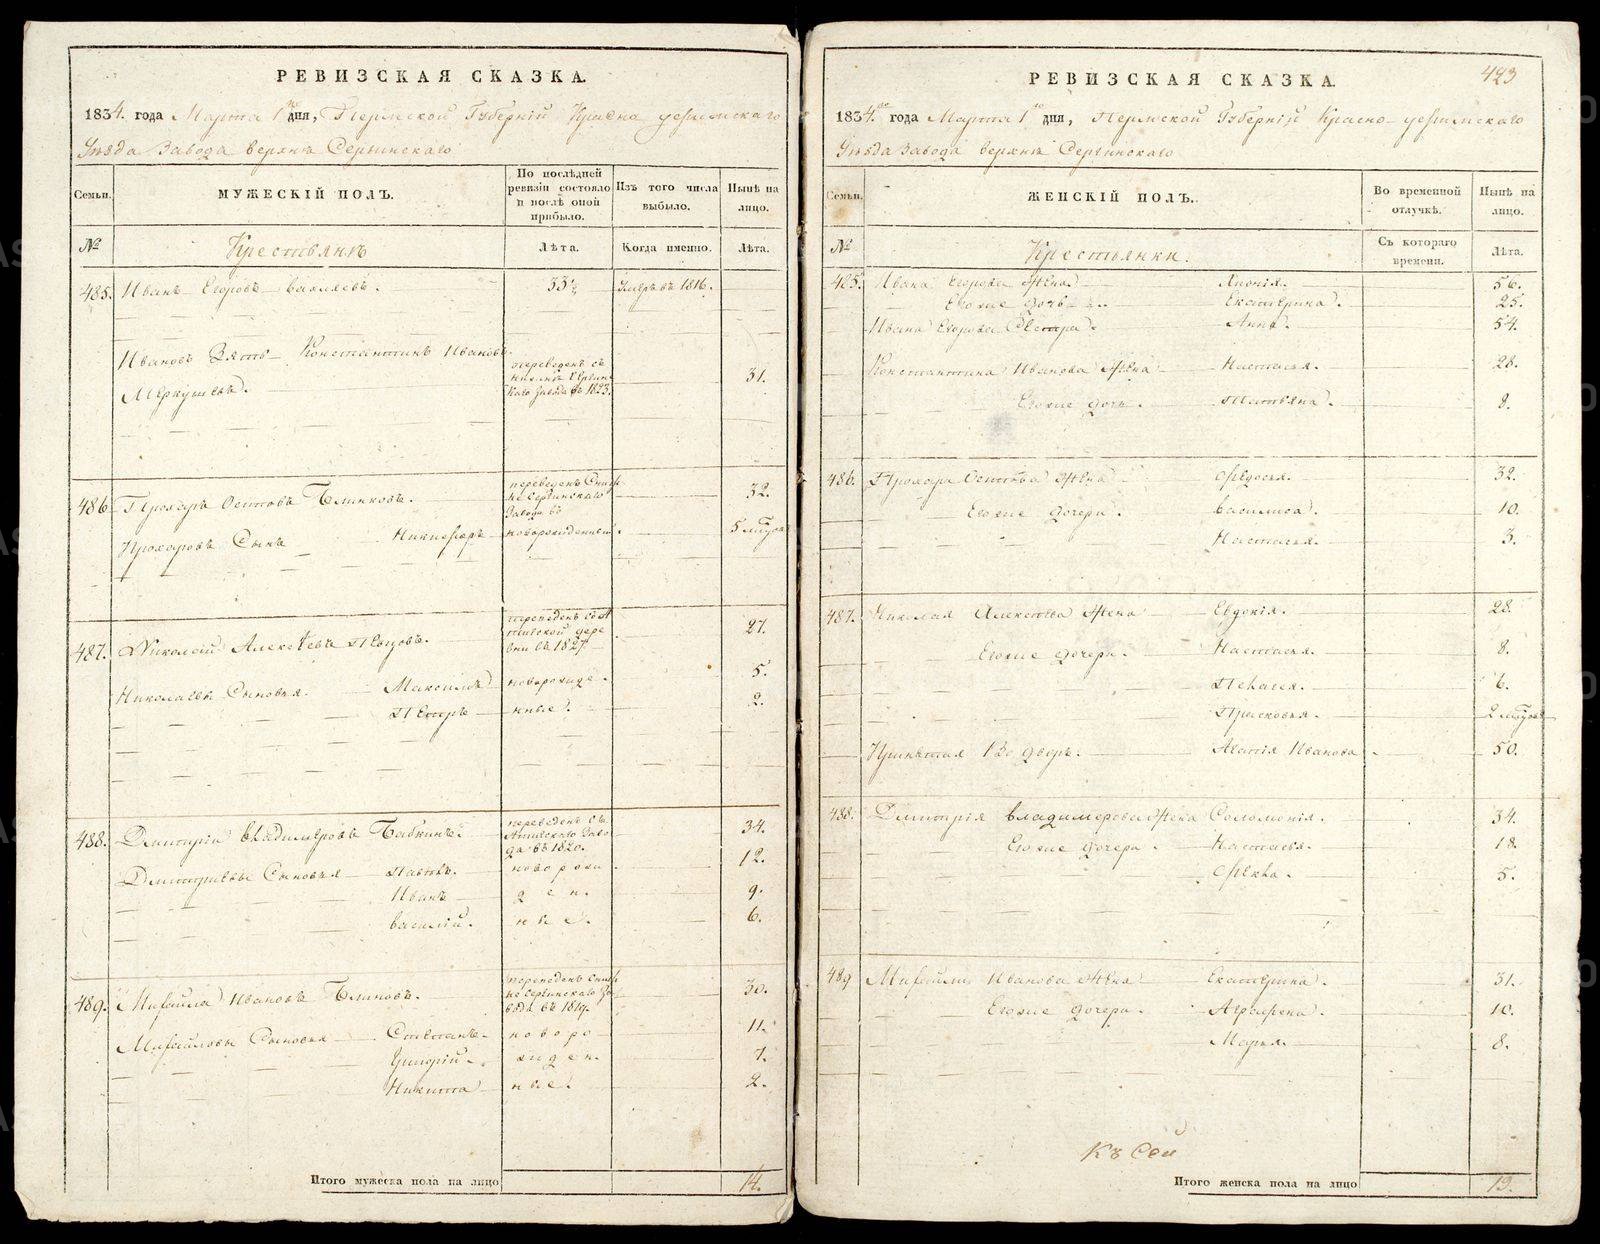 РЕВИЗСКАЯ СКАЗКА.
1834. года Марта 1го дня, Пермской Губерній Красно уфимскаго
Уѣзда Завода верхнѣ Сергинскаго
Семьи.
МУЖЕСКІЙ ПОЛЪ.
По послѣдней ревизіи состояло и послѣ оной прибыло.
Изъ того числа выбыло.
Нынѣ на лицо.
№
Крестьянъ
Лѣта.
Когда именно.
Лѣта.
485. Иванъ Егоровъ 53 Умеръ въ 1816.
Ивановъ Зять Константинъ Ивановъ
переведенъ съ
Меркушевъ. 31.
Завода въ 1823.
486. Прохоръ Осиповъ Блиновъ. 32.
Сергинскаго
Завода въ
Прохоровъ Сынъ Никифоръ новорожденный. 5
487. Николай Алексѣевъ Пѣвцовъ. 27.
переведенъ
дере
вни въ 1827.
Николаевы Сыновья. Максимъ новорожде 5.
Петръ нные. 2.
488. Дмитрій Владимеровъ Бабкинъ. 34.
переведенъ съ
Заво
да въ 1820.
Дмитріевы Сыновья Павелъ. новорож 12.
Иванъ ден 9.
василій. ные. 6.
489. Михайла Ивановъ Блиновъ. 30.
переведенъ съниж
не Сергинскаго За
вода въ 1819.
Михайловы Сыновья Степанъ новоро 11.
Григорій жден 7.
Никита ные. 2.
Итого мужеска пола на лицо 14.
423
РЕВИЗСКАЯ СКАЗКА.
1834.го года Марта 1го дня, Пермской Губерній Красно уфимскаго
Уѣзда Завода верхнѣ Сергинскаго
Семьи.
ЖЕНСКІЙ ПОЛЪ.
Во временной отлучкѣ.
Нынѣ на лицо.
№
Крестьянки.
Съ котораго времени.
Лѣта.
485. Ивана Егорова Жена 56.
Егожие дочь Екатерина. 25.
Ивана Егорова Сестра. Анна. 54.
Константина Иванова Жена Настасья. 28.
Егожие дочь. Татьяна. 8.
486. Прохора Осипова Жена Федосья. 32.
Егожие дочери. василиса. 10.
Настасья. 3.
487. Николая Алексѣева Жена Евдокія. 28.
Егожие дочери. Настасья. 8.
Пелагея. 6.
Прасковья. 2
Принятая Во дворъ. Агапія Иванова 50.
488. Дмитрія Владимерова Жена Соломонія. 34.
Егожие дочери. Настасья. 18.
Фекла. 5.
489 Михайлы Иванова Жена Екатерина. 31.
Егожие дочери. Аграфена. 10.
Марья. 8.
Къ Сей
Итого женска пола на лицо 19.